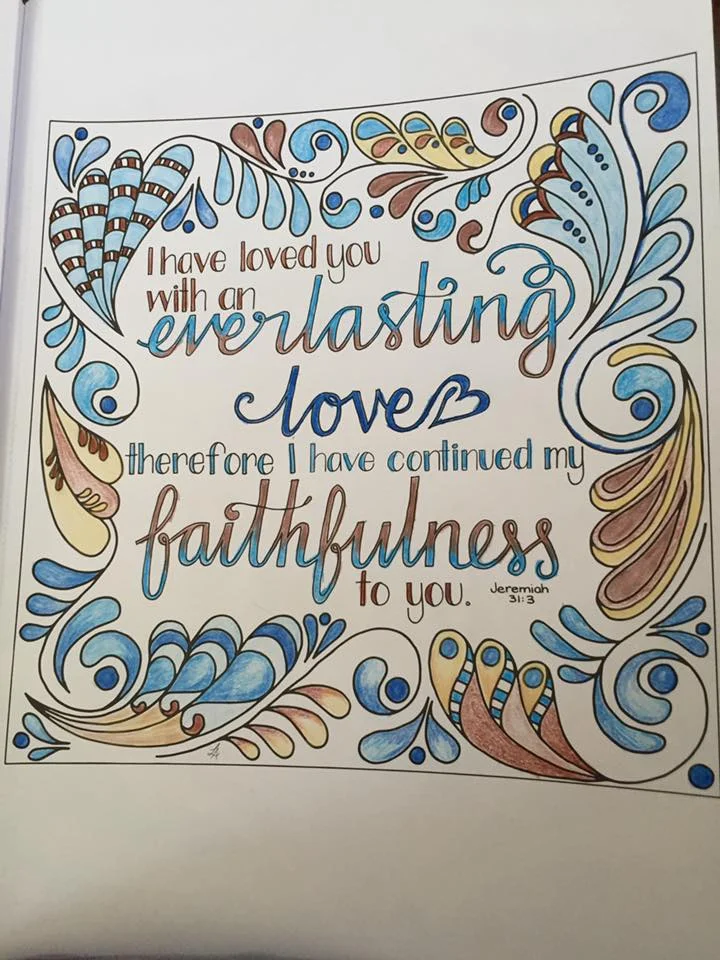 I have loved you
with an
everlasting
love
therefore I have continued my
faithfulness
to you.
Jeremiah
31:3